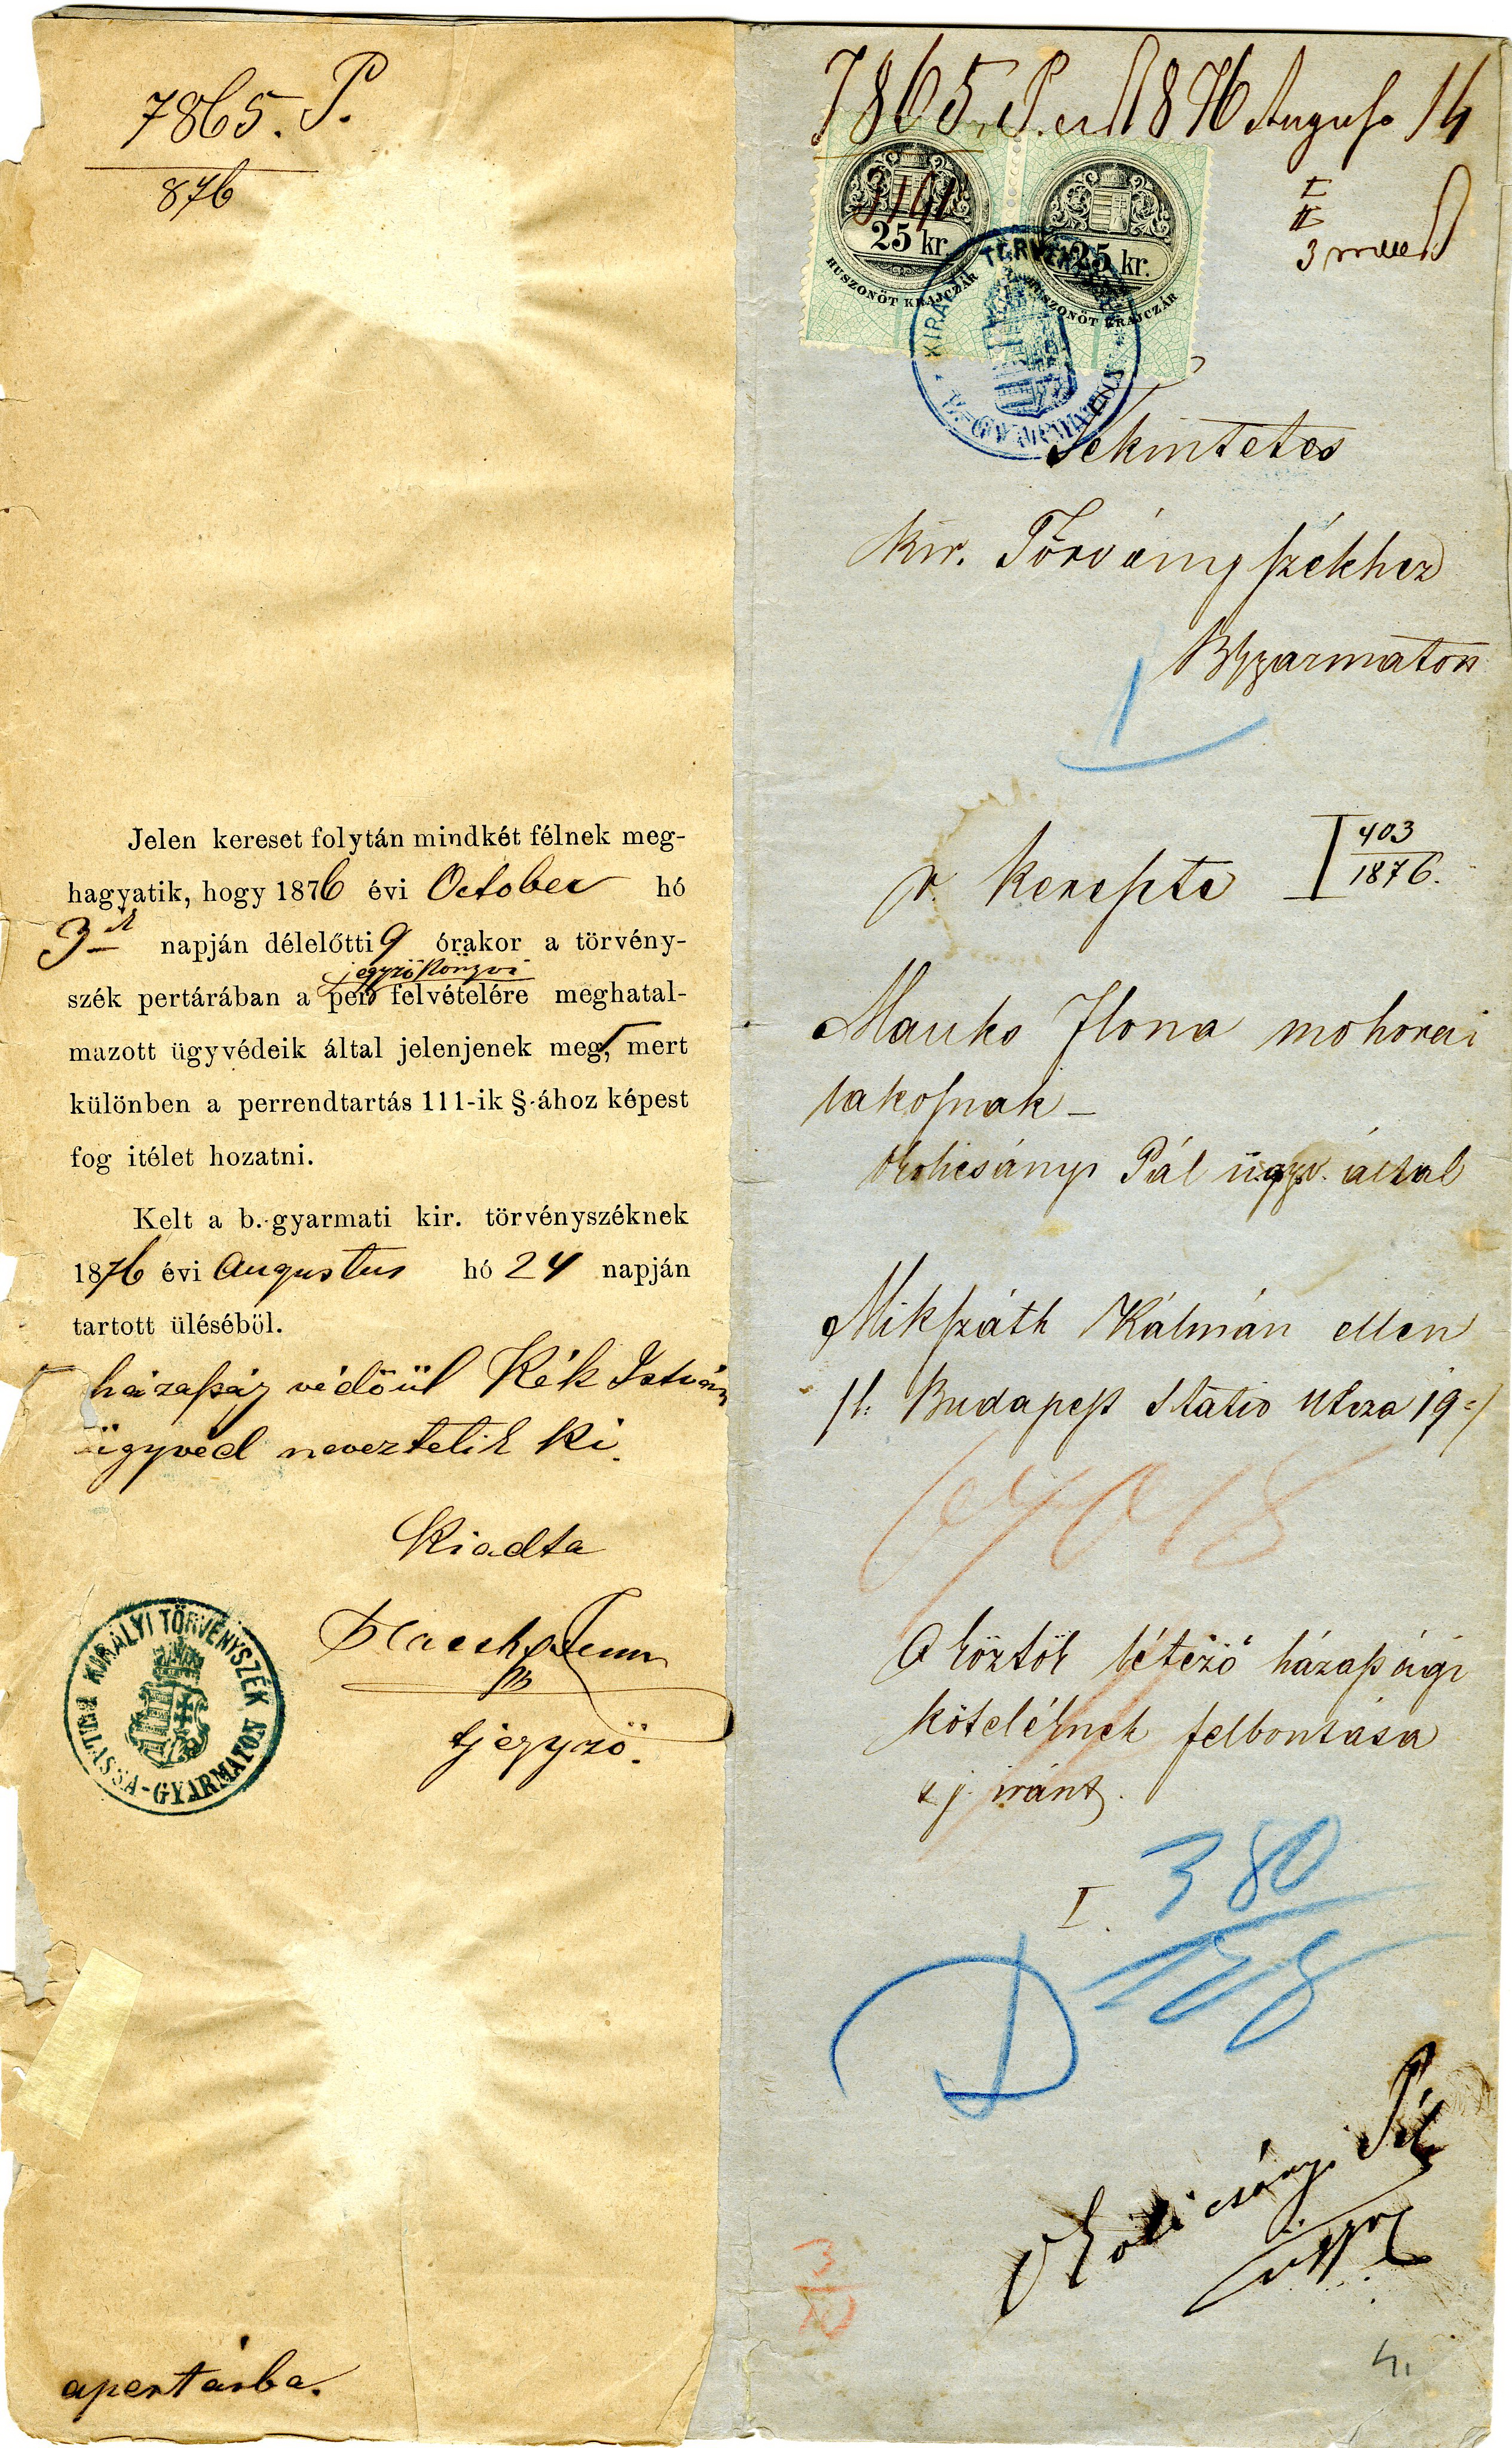 7865. P.
876
Jelen kereset folytán mindkét félnek meg-
hagyatik, hogy 1876 évi October hó
3-ik napján délelőtti 9 órakor a törvény-
jegyzőkönyvi
szék pertárában a per felvételére meghatal-
mazott ügyvédeik által jelenjenek meg, mert
különben a perrendtartás 111-ik §-ához képest
fog itélet hozatni.
Kelt a b.-gyarmati kir. törvényszéknek
1876 évi Augustus hó 24 napján
tartott üléséböl.
házasság védőül Kék István
ügyvéd neveztetik ki.
Kiadta
tjegyző.
KIRÁLYI TÖRVÉNYSZÉK BALASSA-GYARMATON
a pertárba.
7865. P. 1876 August 14
I
II
3
3141
25 kr.
HUSZONÖT KRAJCZÁR
25 kr.
HUSZONÖT KRAJCZÁR
Tekintetes
kir. Törvényszékhez
BGyarmaton
r. kereste I 403
1876.
Mauks Ilona mohorai
lakosnak
Okolicsányi Pál ügyv. által
Mikszáth Kálmán ellen
Budapest Statio utcza 19
A köztök létező házassági
köteléknek felbontása
iránt.
I. 380
Okolicsányi Pál
ügyv